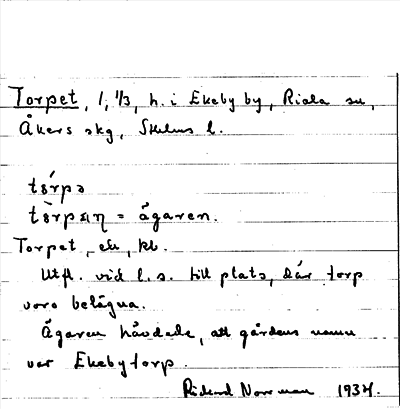 Torpet, 1, 1/3, h. i Ekeby by, Riala sn,
Åkers skg, Sthlms l.
Torpet, ek, kb.
Utfl. vid l. s. till plats, där torp
voro belägna.
Ägaren hävdade, att gårdens namn
var Ekebytorp.
Rickard Norrman 1934.